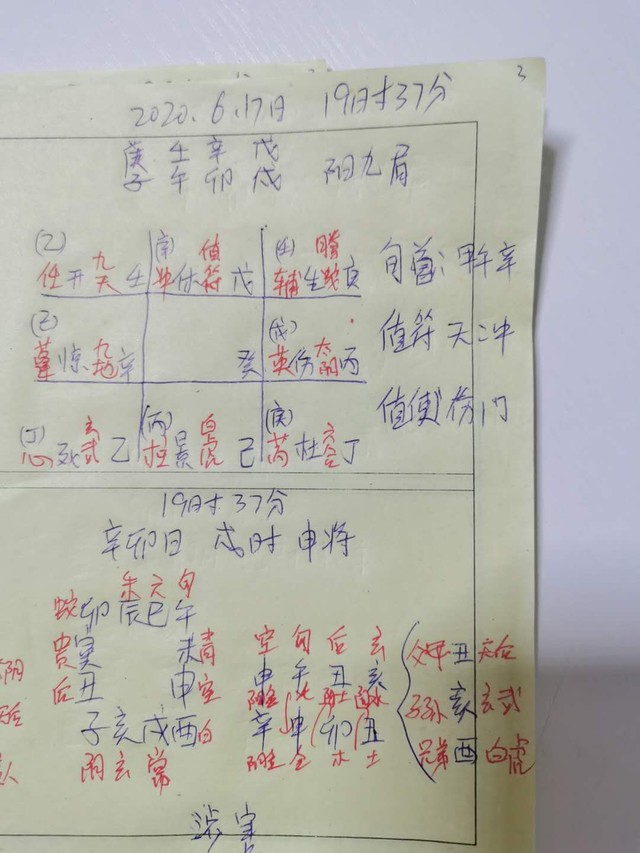 3
2020.6.17日 19时37分
庚 壬 辛 戊
子 午 卯 戌 阳九局
(乙) 任 开 九天 壬 值符 休 戊 (壬) 辅 生 螣蛇 庚
旬首:甲午辛
九地 辛 癸 (戊) 英 伤 太阴 丙
值符 天冲
值使 伤门
(丁) 心 死 玄武 乙 (丙) 柱 景 白虎 己 (庚) 芮 杜 六合 丁
19时37分
辛卯日 戌时 申将
朱 六 勾
蛇 卯 辰 巳 午
贵 寅 未 青 空 勾 后 玄
后 丑 申 空 申 午 丑 亥
子 亥 戌 酉 白 辛 申 卯 丑
阴 玄 常 金 木 土
丑 天后
子孙 亥 玄武
兄弟 酉 白虎
涉害